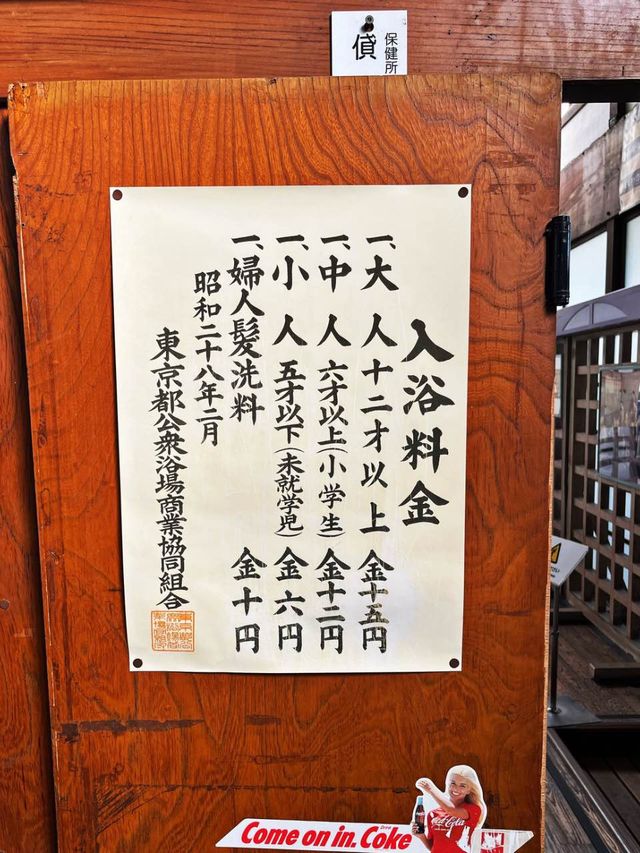 貸
保健所
入浴料金
一、大人 十二才以上 金十五円
一、中人 六才以上(小学生) 金十二円
一、小人 五才以下(未就学児) 金六円
一、婦人髪洗料 金十円
昭和二十八年二月
東京都公衆浴場商業協同組合
Come on in. Coke
Coca-Cola